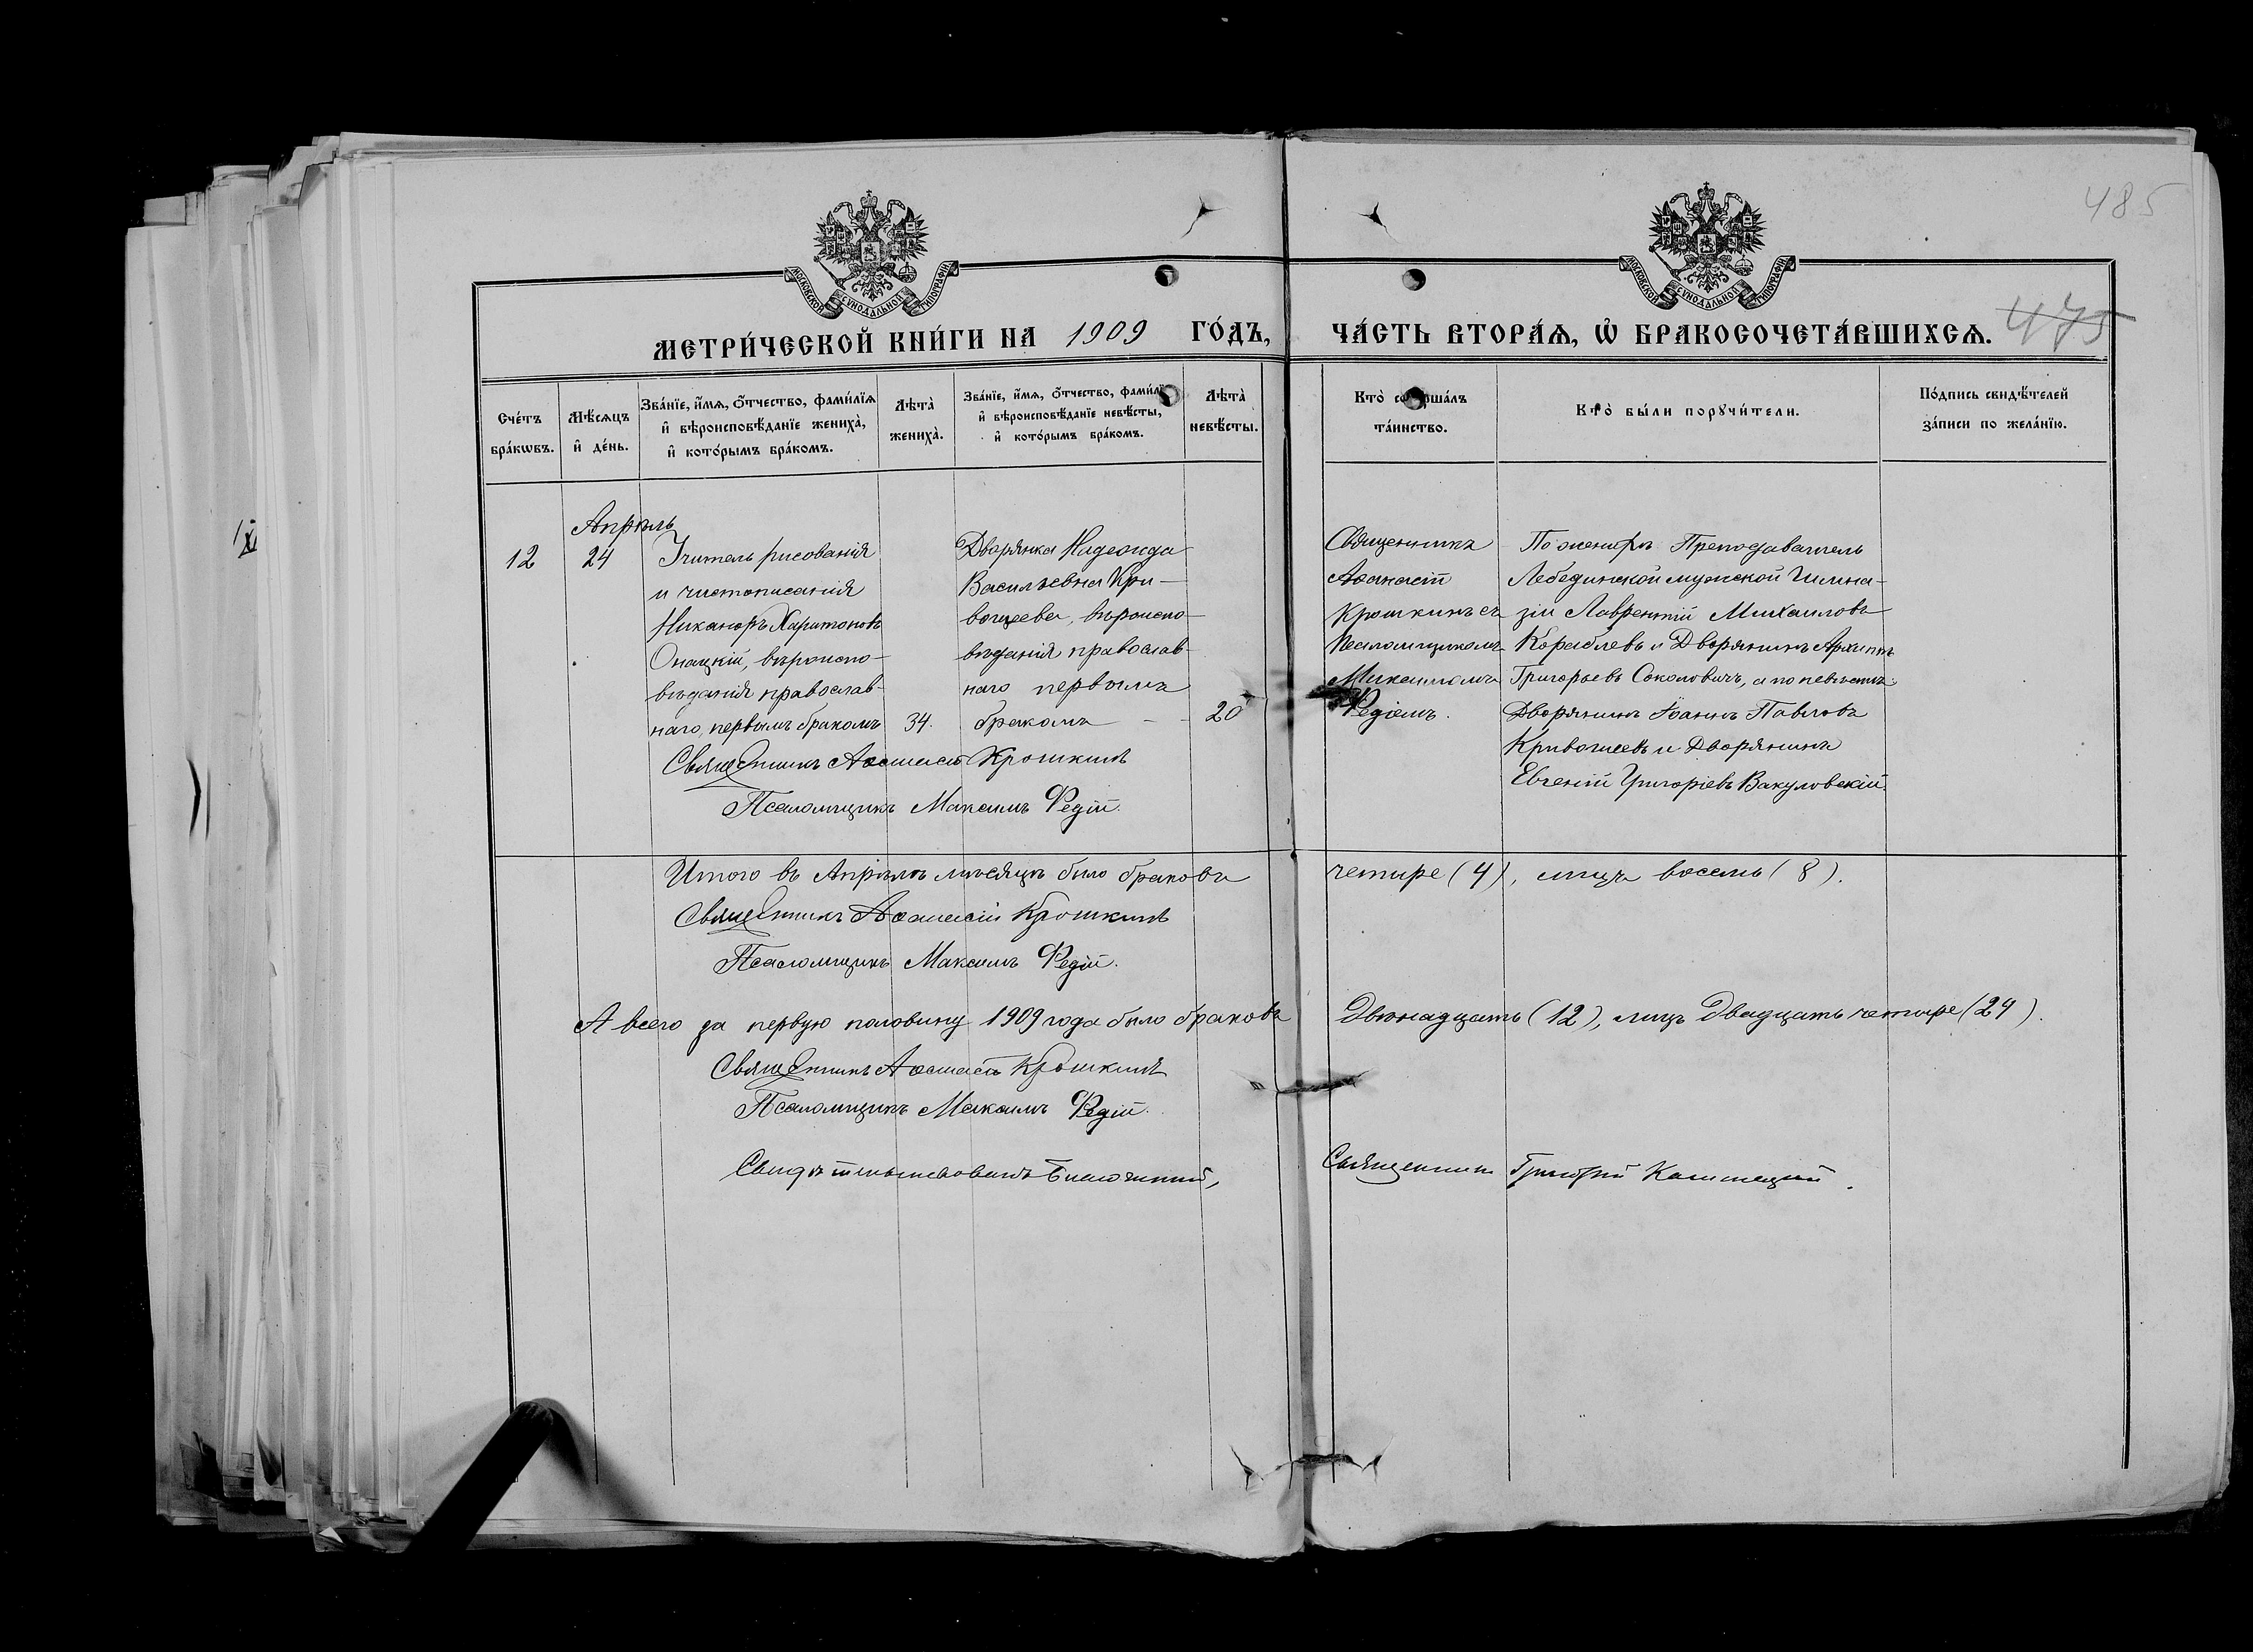 485
МОСКОВСКОЙ СѴНОДАЛЬНОЙ ТИПОГРАФІИ
МОСКОВСКОЙ СѴНОДАЛЬНОЙ ТИПОГРАФІИ
МЕТРИ́ЧЕСКОЙ КНИ́ГИ НА 1909 ГО́ДЪ,
ЧА́СТЬ ВТОРА́Ѧ, Ѡ҆ БРАКОСОЧЕТА́ВШИХСѦ.
475
Сче́тъ бра́кѡвъ.
Мѣ́сѧцъ и҆ де́нь.
Зва́нїе, и҆́мѧ, ѻ҆́тчество, фами́лїѧ
и҆ вѣроисповѣ́данїе жениха̀,
и҆ кото́рымъ бра́комъ.
Лѣта̀ жениха̀.
Зва́нїе, и҆́мѧ, ѻ҆́тчество, фами́лїѧ
и҆ вѣроисповѣ́данїе невѣ́сты,
и҆ кото́рымъ бра́комъ.
Лѣта̀ невѣ́сты.
Кто̀ соверша́лъ
та́инство.
Кто̀ бы́ли порꙋчи́тели.
По́дпись свидѣ́телей
за́писи по жела́нїю.
Апрѣль
12
24
Учитель рисованія
и чистописанія
Никаноръ Харитоновъ
Онацкій, вѣроиспо-
вѣданія православ-
наго, первымъ бракомъ
34.
Дворянка Надежда
Васильевна Кри-
вошеева, вѣроиспо-
вѣданія православ-
наго первымъ
бракомъ
20
Священникъ
Аѳанасій
Крошкинъ съ
Псаломщикомъ
Максимомъ
Федіемъ.
По женихѣ Преподаватель
Лебединской мужской Гимна-
зіи Лаврентій Михаиловъ
Кораблевъ и Дворянинъ Архипъ
Григорьевъ Соколовичъ, а по невѣстѣ:
Дворянинъ Іоаннъ Павловъ
Кривошеевъ и Дворянинъ
Евгеній Григоріевъ Вакуловскій.
Священникъ Аѳанасій Крошкинъ
Псаломщикъ Максимъ Федій.
Итого въ Апрѣлѣ мѣсяцѣ было браковъ четыре (4), лицъ восемь (8).
Священникъ Аѳанасій Крошкинъ
Псаломщикъ Максимъ Федій.
А всего за первую половину 1909 года было браковъ двѣнадцать (12), лицъ двадцать четыре (24).
Священникъ Аѳанасій Крошкинъ
Псаломщикъ Максимъ Федій.
Свидѣтельствовалъ Благочинный, Священникъ Григорій